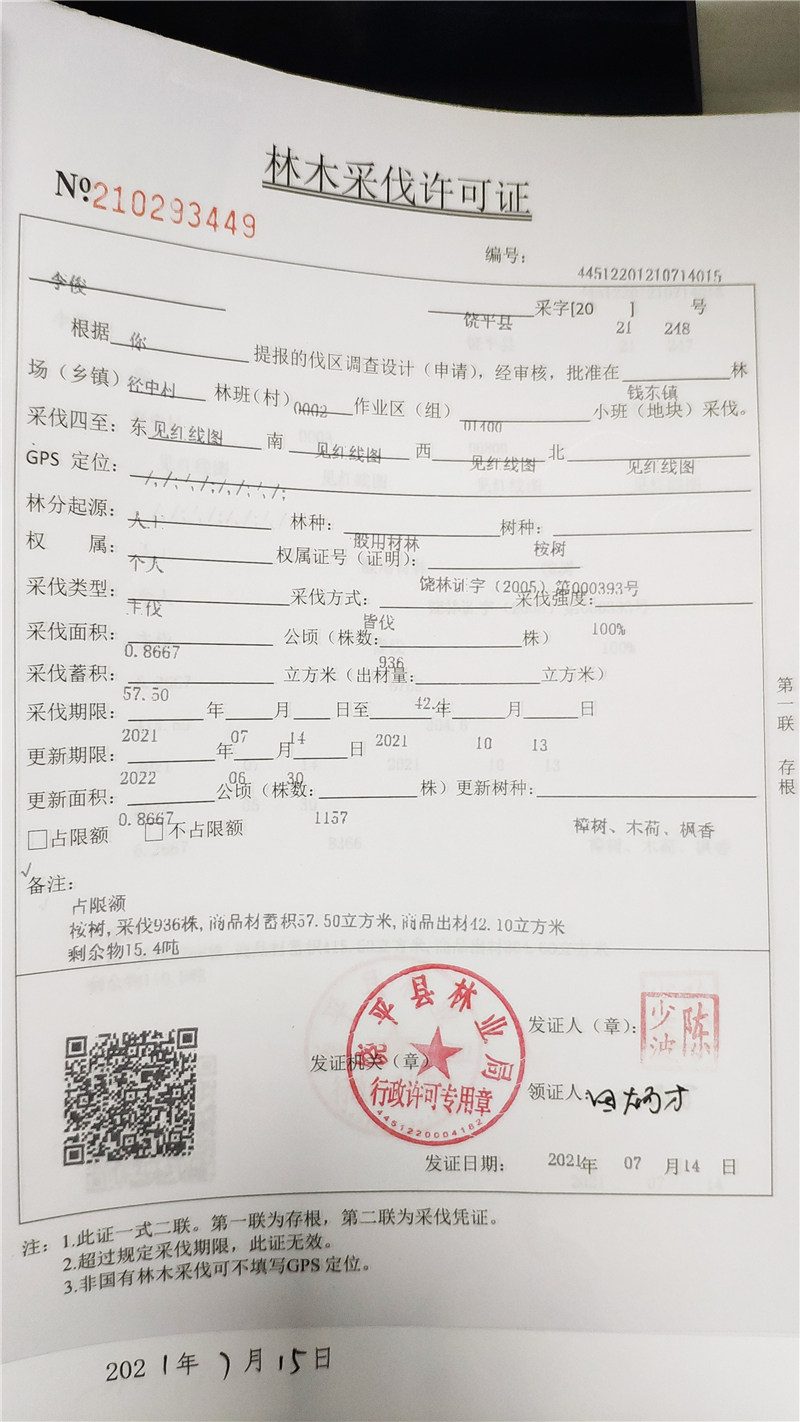 林木采伐许可证
№210293449
编号: 44512201210714015
李俊 饶平县 采字[20 21 ] 248 号
根据 你 提报的伐区调查设计（申请），经审核，批准在 钱东镇 林
场（乡镇）径中村 林班（村）0002 作业区（组）01400 小班（地块）采伐。
采伐四至：东 见红线图 南 见红线图 西 见红线图 北 见红线图
GPS 定位： /,/;/,/;/,/;/,/;
林分起源：人工 林种： 般用材林 树种： 桉树
权 属： 个人 权属证号（证明）： 饶林证字（2005）第000393号
采伐类型： 主伐 采伐方式： 皆伐 采伐强度： 100%
采伐面积： 0.8667 公顷（株数: 936 株）
采伐蓄积： 57.50 立方米（出材量: 42. 立方米）
采伐期限： 2021 年 07 月 14 日至 2021 年 10 月 13 日
更新期限： 2022 年 06 月 30 日
更新面积： 0.8667 公顷（株数： 1157 株）更新树种： 樟树、木荷、枫香
□占限额 □不占限额
√
备注：
占限额
桉树,采伐936株,商品材蓄积57.50立方米,商品出材42.10立方米
剩余物15.4吨
第一联 存根
饶平县林业局
行政许可专用章
4451220004182
发证机关（章）
发证人（章）： 陈少波
领证人:
发证日期： 2021年 07 月14 日
注： 1.此证一式二联。第一联为存根，第二联为采伐凭证。
2.超过规定采伐期限，此证无效。
3.非国有林木采伐可不填写GPS 定位。
2021年7月15日